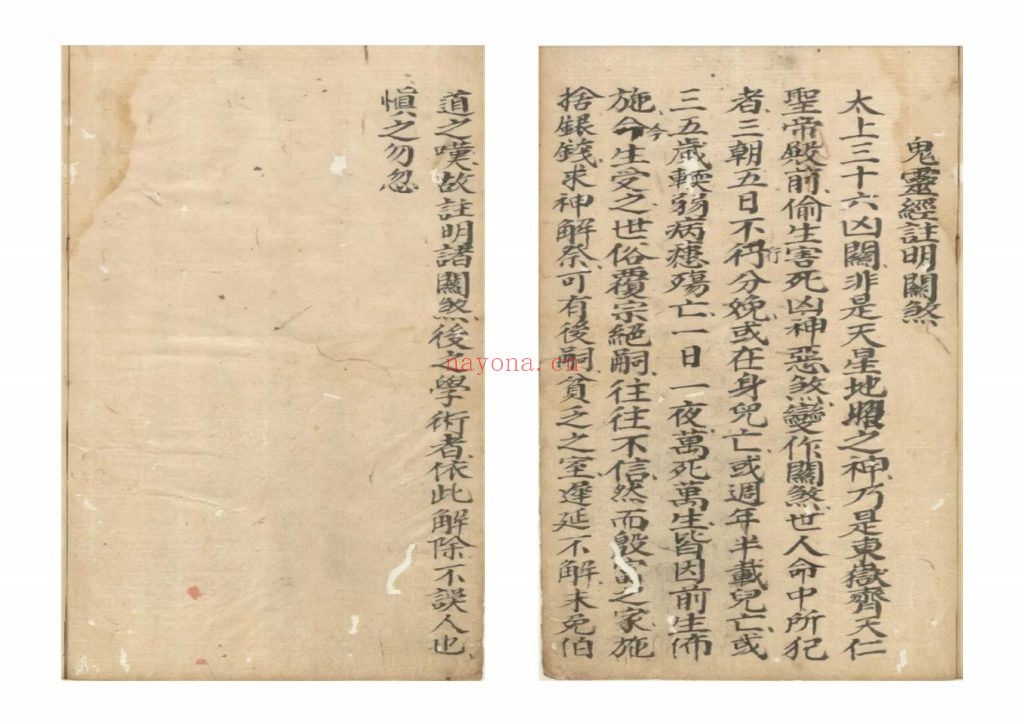 鬼靈經註明關煞
太上三十六凶關非是天星地曜之神乃是東嶽齊天仁
聖帝殿前偷生害死凶神惡煞變作關煞世人命中所犯
者三朝五日不行分娩或在身兒亡或週年半載兒亡或
三五歲軟弱病殤亡一日一夜萬死萬生皆因前生佈
施今生受之世俗覆宗絕嗣往往不信然而殷富之家施
捨銀錢求神解祭可有後嗣貧乏之室遲延不解未免伯
道之嘆故註明諸關煞後之學術者依此解除不誤人也
慎之勿忽
nayona.cn